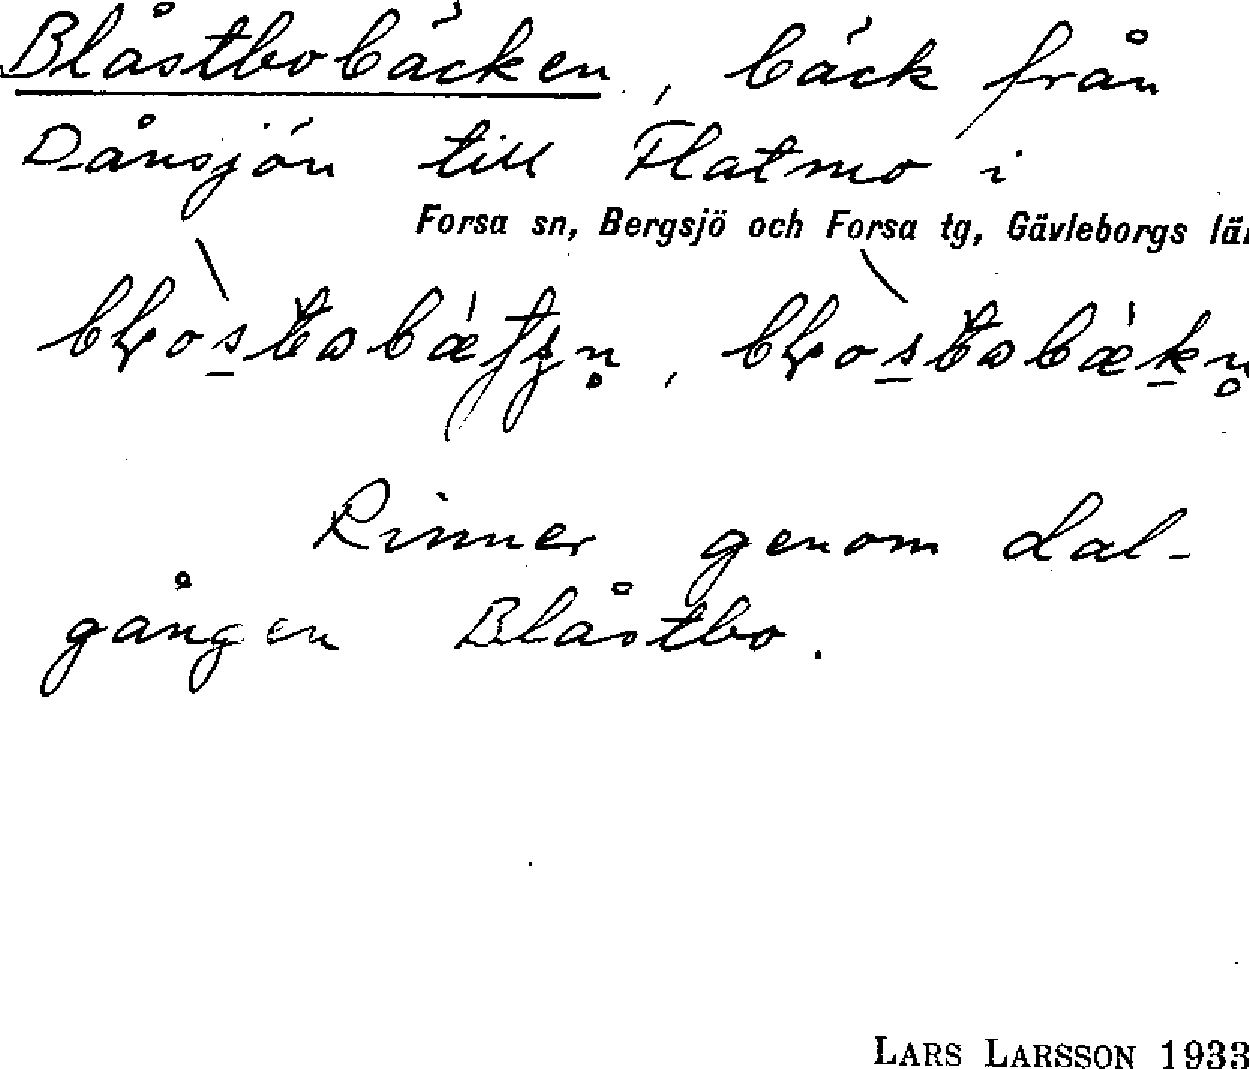 Blåstbobäcken, bäck från
Dånsjön till Flatmo i
Forsa sn, Bergsjö och Forsa tg, Gävleborgs län
Rinner genom dal-
gången Blåstbo.
LARS LARSSON 1933